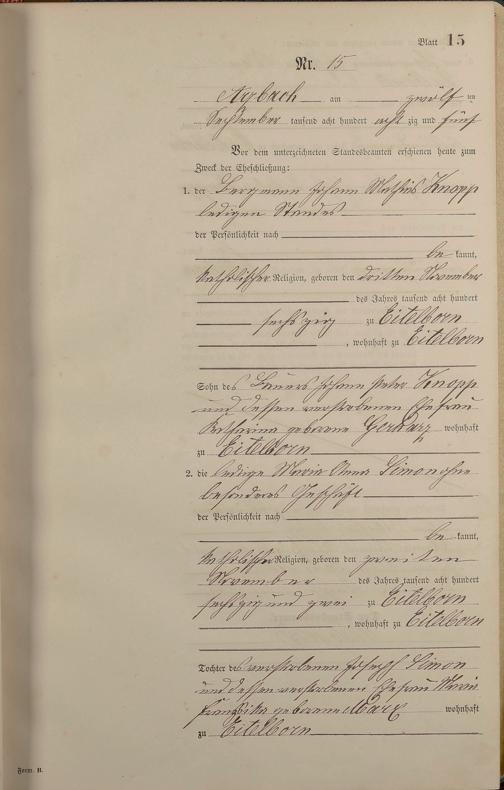 Blatt 15
Nr. 15
Arzbach am zwölf ten
September tausend acht hundert acht zig und fünf
Vor dem unterzeichneten Standesbeamten erschienen heute zum
Zweck der Eheschließung:
1. der Bergmann Johann Mathias Knopp
ledigen Standes
der Persönlichkeit nach
be kannt,
katholischer Religion, geboren den dritten November
des Jahres tausend acht hundert
sechszig zu Eitelborn
, wohnhaft zu Eitelborn
Sohn des Bauers Johann Peter Knopp
und dessen verstorbenen Ehefrau
Katharina geborene wohnhaft
zu Eitelborn
2. die ledige Maria Anna Simon ohne
besonderes Geschäft
der Persönlichkeit nach
be kannt,
katholischer Religion, geboren den zweiten
November des Jahres tausend acht hundert
sechszig und zwei zu Eitelborn
, wohnhaft zu Eitelborn
Tochter des verstorbenen Joseph Simon
und dessen verstorbenen Ehefrau Maria
Franziska geborene Marx wohnhaft
zu Eitelborn
Form. B.